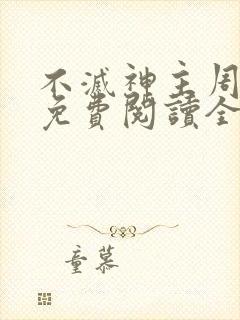 不滅神主周
免費閱讀全
童慕